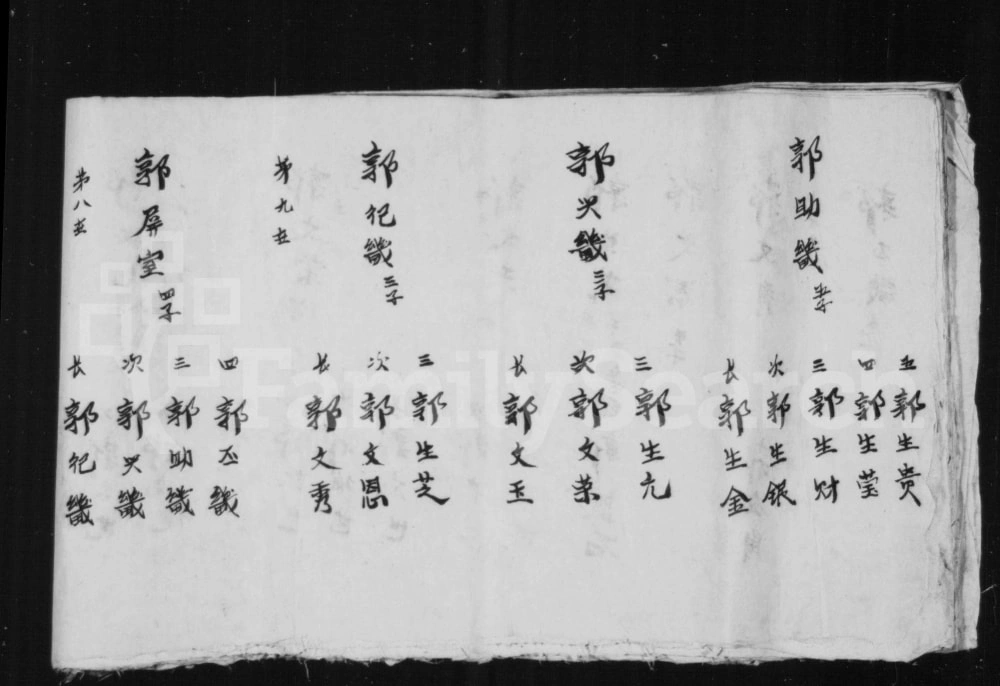 第八世
郭屏室 四子
长 郭祀畿
次 郭兴畿
三 郭助畿
四 郭丕畿
第九世
郭祀畿 三子
长 郭文秀
次 郭文恩
三 郭生芝
郭兴畿 三子
长 郭文玉
次 郭文荣
三 郭生元
郭助畿 五子
长 郭生金
次 郭生银
三 郭生财
四 郭生莹
五 郭生贵
FamilySearch